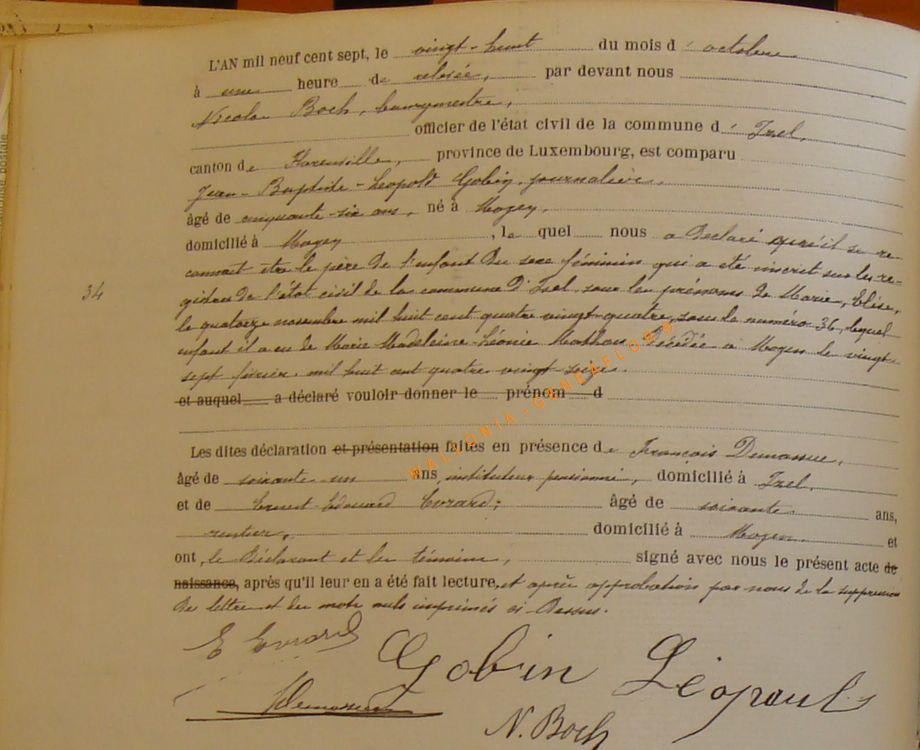 L'AN mil neuf cent sept, le vingt-huit du mois d' octobre
à une heure de relevée, par devant nous
Nicolas Boch, bourgmestre,
officier de l'état civil de la commune d' Izel,
canton de Florenville, province de Luxembourg, est comparu
Jean-Baptiste-Léopold Gobin, journalier,
âgé de cinquante-six ans, né à Moyen,
domicilié à Moyen, lequel nous a déclaré qu'il se re-
connait être le père de l'enfant du sexe féminin qui a été inscrit sur les re-
gistres de l'état civil de la commune d'Izel, sous les prénoms de Marie, Elise,
34
le quatorze novembre mil huit cent quatre vingt-quatre, sous le numéro 36, lequel
enfant il a eu de Marie Madeleine-Léonie Mathon, décédée à Moyen le vingt-
sept février, mil huit cent quatre vingt seize.
et auquel a déclaré vouloir donner le prénom d
Les dites déclaration et présentation faites en présence de François
âgé de soixante un ans, instituteur pensionné, domicilié à Izel,
et de Ernest-Edouard Evrard, âgé de soixante ans,
rentier, domicilié à Moyen et
ont, le déclarant et les témoins, signé avec nous le présent acte de
naissance, après qu'il leur en a été fait lecture, et après approbation par nous de la suppression
de lettre et des mots nuls imprimés ci-dessus.
E Evrard
Gobin Léopold
N. Boch
WALLONIA-GENEAFLORE